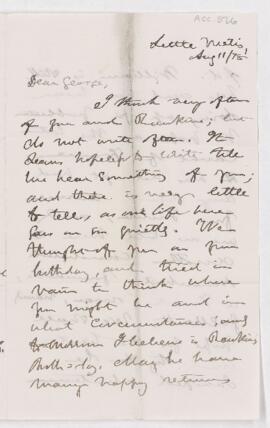 ACC. 526
Little Metis,
Aug 11/75
Dear George,
I think very often
of you and Rankine; but
do not write often. It
seems hopeless to write till
we hear something of you;
and there is very little
to tell, as our life here
goes on so quietly. We
thought of you on your
birthday, and tried in
vain to think where
you might be and in
what circumstances; and
to-morrow I believe is Rankine's
Birth-day. May he have
many happy returns